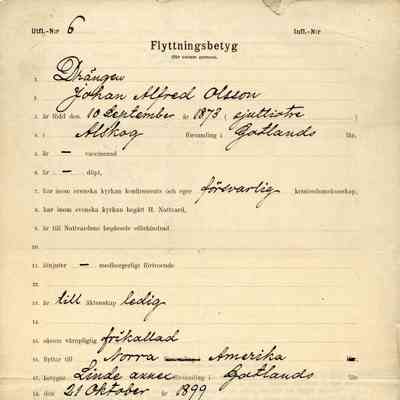 Utfl.-N:r 6 Infl.-N:r
Flyttningsbetyg
(för ensam person).
1. Drängen
2. Johan Alfred Olsson
3. är född den 10 September år 1873 ( sjuttiotre )
4. i Alskog församling i Gotlands län,
5. är — vaccinerad
6. är — döpt,
7. har inom svenska kyrkan konfirmerats och eger försvarlig kristendomskunskap,
8. har inom svenska kyrkan begått H. Nattvard,
9. är till Nattvardens begående oförhindrad
10.
11. åtnjuter — medborgerligt förtroende
12.
13. är till äktenskap ledig
14.
15. såsom värnpligtig frikallad
16. flyttar till Norra Amerika
17. betygas Linde annex församling i Gotlands län
18. den 21 Oktober år 1899